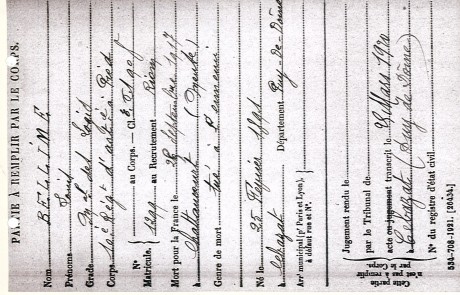 PARTIE À REMPLIR PAR LE CORPS.
Nom BELLIME
Prénoms Louis
Grade Mal des Logis
Corps 10e Régt d'artie à Pied
N° Matricule. au Corps. — Cl.
1299 au Recrutement Riom
Mort pour la France le 28 septembre 1917
à Chattancourt (Meuse)
Genre de mort tué à l'ennemi
Né le 25 Février 1891
à Lebazat Département Puy-de-Dôme
Arrt municipal (pr Paris et Lyon), à défaut rue et N°.
Cette partie n'est pas à remplir par le Corps.
Jugement rendu le
par le Tribunal de
acte ou jugement transcrit le 23 Mars 1920
à Lebazat (Puy de Dôme)
N° du registre d'état civil
534-708-1921. [26434.]